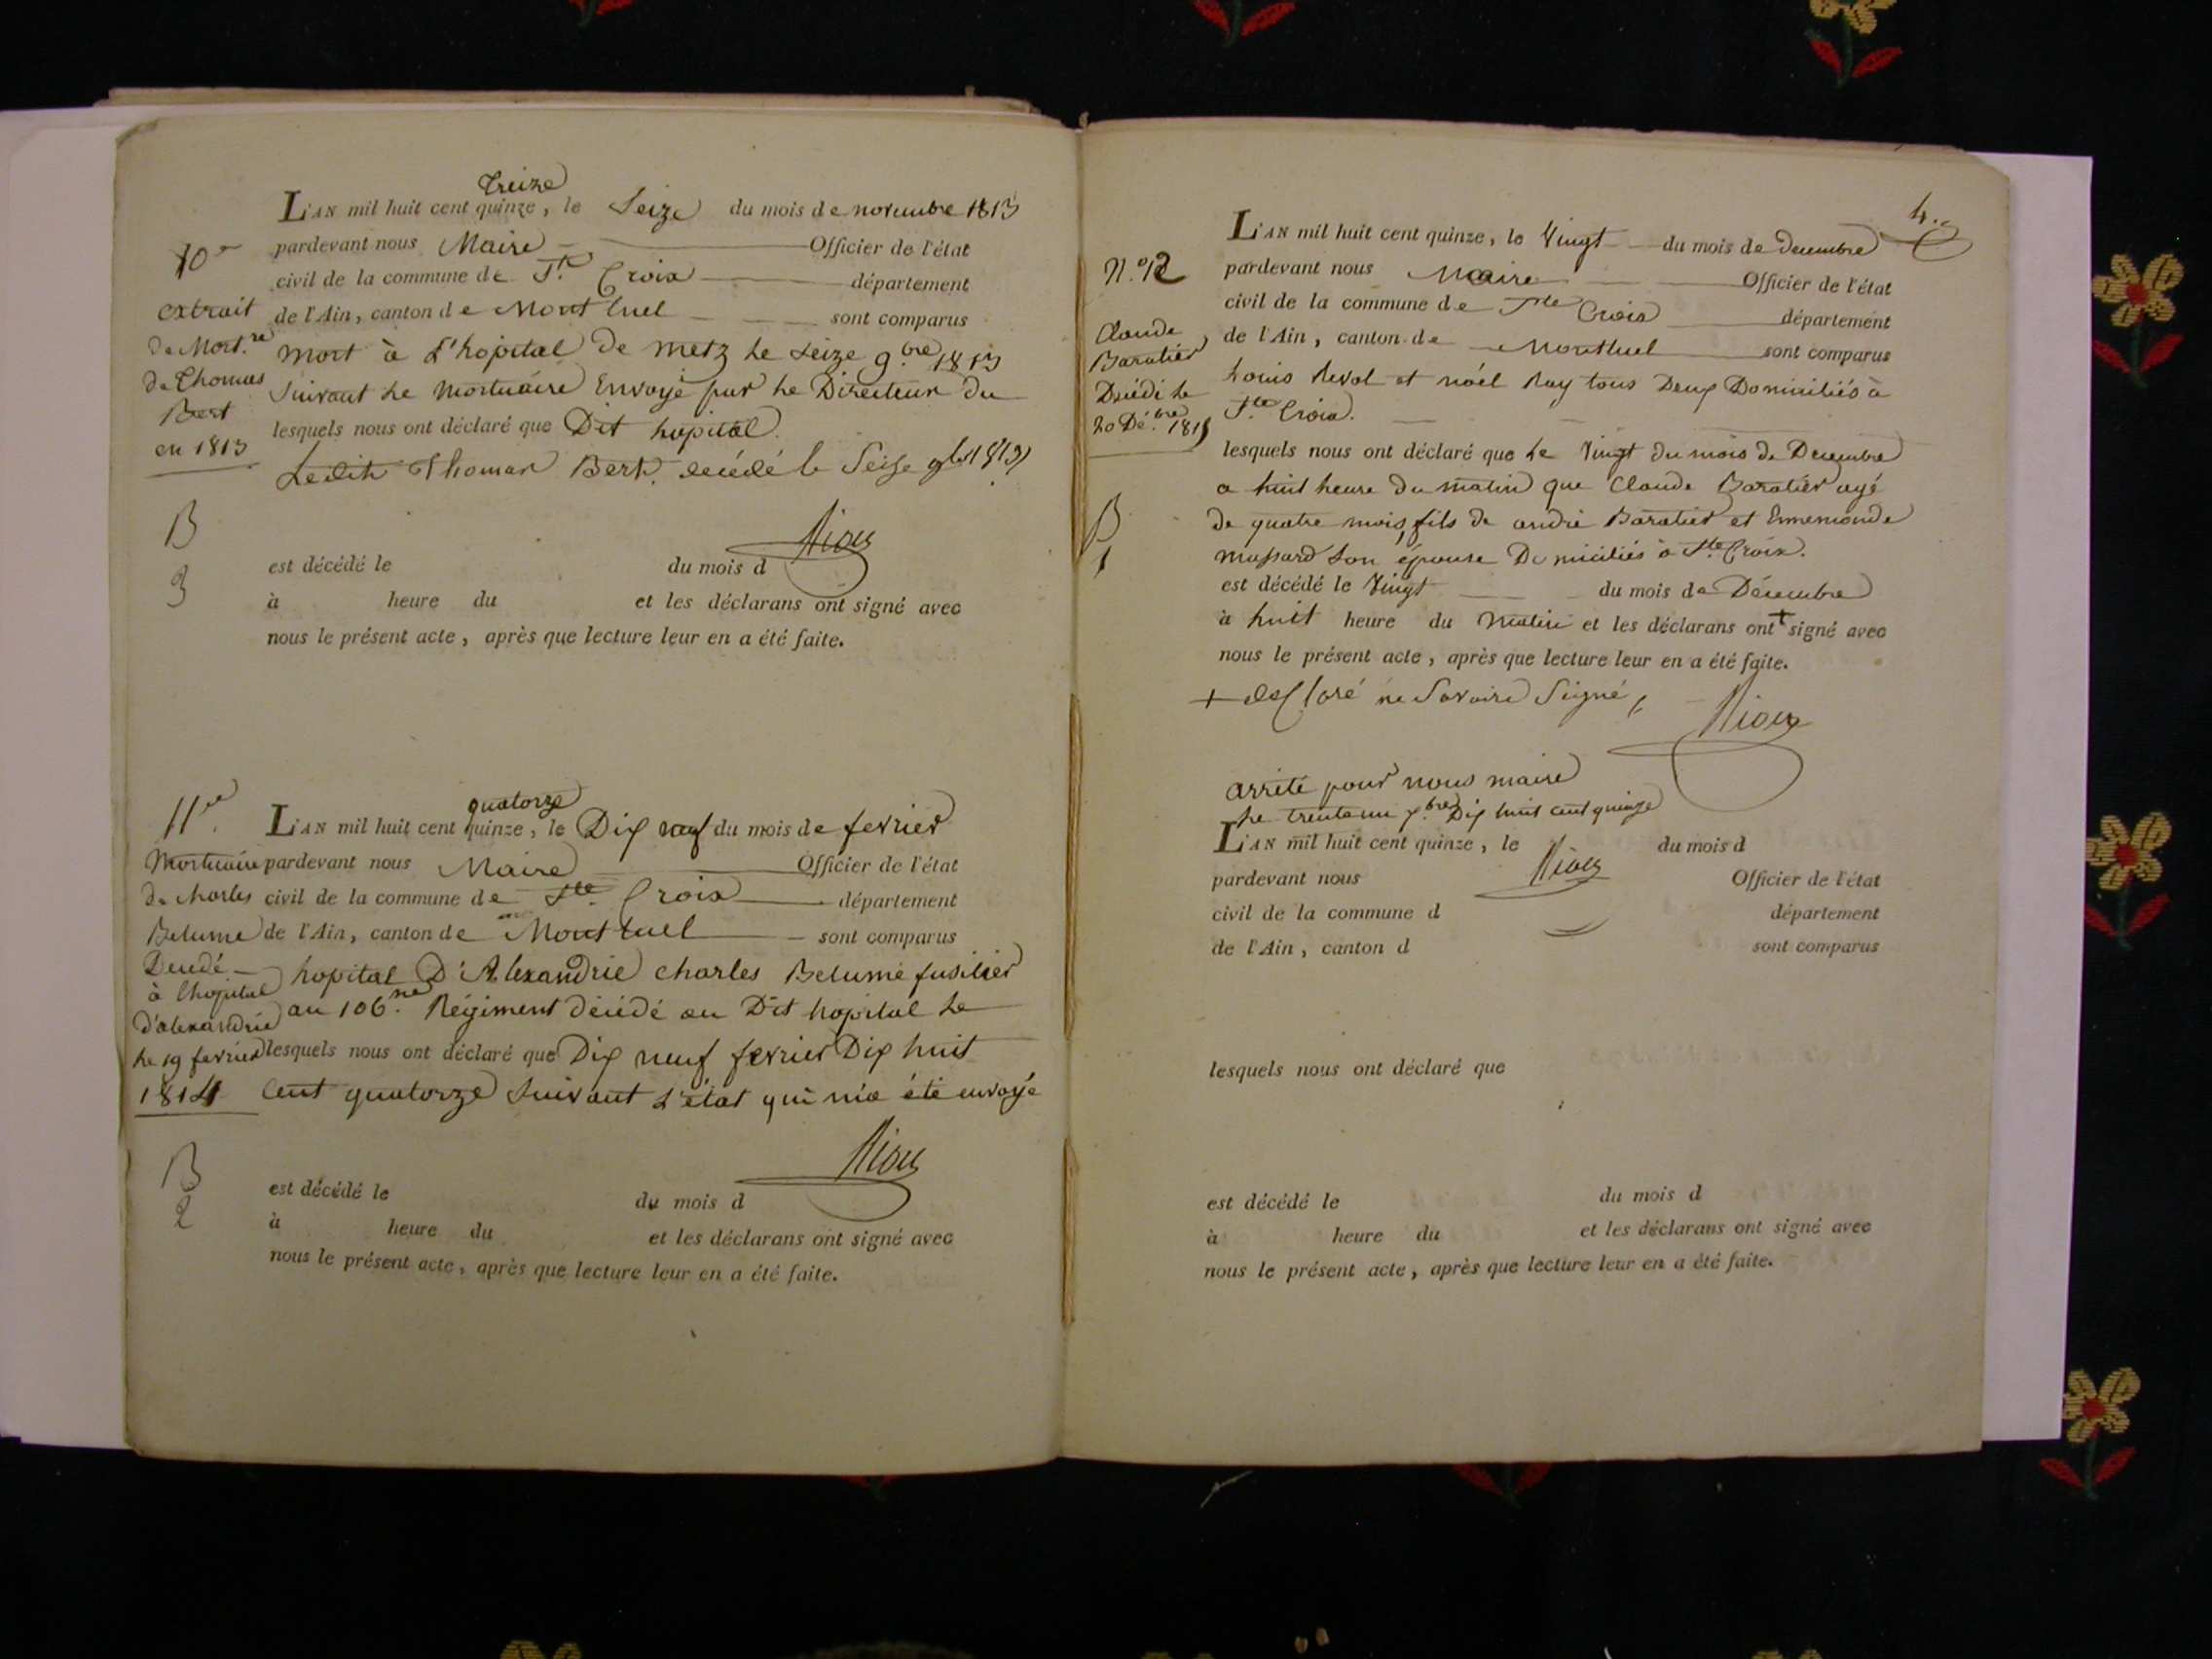 10e
extrait
de Mort.re
de Thomas
Bert
en 1813
B
3
treize
L'AN mil huit cent quinze, le Seize du mois de novembre 1813
pardevant nous Maire Officier de l'état
civil de la commune de Ste Croix département
de l'Ain, canton de Montluel sont comparus
mort à L'hopital de metz le seize 9.bre 1813
suivant le mortuaire Envoyé par le Directeur du
lesquels nous ont déclaré que Dit hopital.
Ledit Thomas Bert. decédé le Seize 9bre 1813
Riou
est décédé le du mois d
à heure du et les déclarans ont signé avec
nous le présent acte, après que lecture leur en a été faite.
11e
Mortuaire
de charles
Belume
Decedé
à lhopital
d'alexandrie
le 19 fevrier
1814
B
2
quatorze
L'AN mil huit cent quinze, le Dix neuf du mois de fevrier
pardevant nous Maire Officier de l'état
civil de la commune de Ste Croix département
de l'Ain, canton de Montluel sont comparus
hopital D'Alexandrie charles Belume fusilier
au 106.me Régiment décédé au Dit hopital le
lesquels nous ont déclaré que Dix neuf fevrier Dix huit
Cent quatorze suivant L'état qui m'a été envoyé
Riou
est décédé le du mois d
à heure du et les déclarans ont signé avec
nous le présent acte, après que lecture leur en a été faite.
4.
N.º 12
Claude
Baratier
Decédé le
20 Dé.bre 1815
B
1
L'AN mil huit cent quinze, le Vingt du mois de decembre
pardevant nous Maire Officier de l'état
civil de la commune de Ste Croix département
de l'Ain, canton de Montluel sont comparus
Louis Revol et noël Ray tous Deux Domiciliés à
Ste Croix.
lesquels nous ont déclaré que le Vingt du mois de Decembre
a huit heure du matin que Claude Baratier agé
de quatre mois, fils de andré Baratier et Ennemonde
massard son épouse Domiciliés à Ste Croix.
est décédé le Vingt du mois de Décembre
à huit heure du Matin et les déclarans ont + signé avec
nous le présent acte, après que lecture leur en a été faite.
+ desclaré ne Savoire Signé
Riou
arrité pour nous maire
le trente un x.bre Dix huit cent quinze
L'AN mil huit cent quinze, le du mois d
pardevant nous Riou Officier de l'état
civil de la commune d département
de l'Ain, canton d sont comparus
lesquels nous ont déclaré que
est décédé le du mois d
à heure du et les déclarans ont signé avec
nous le présent acte, après que lecture leur en a été faite.